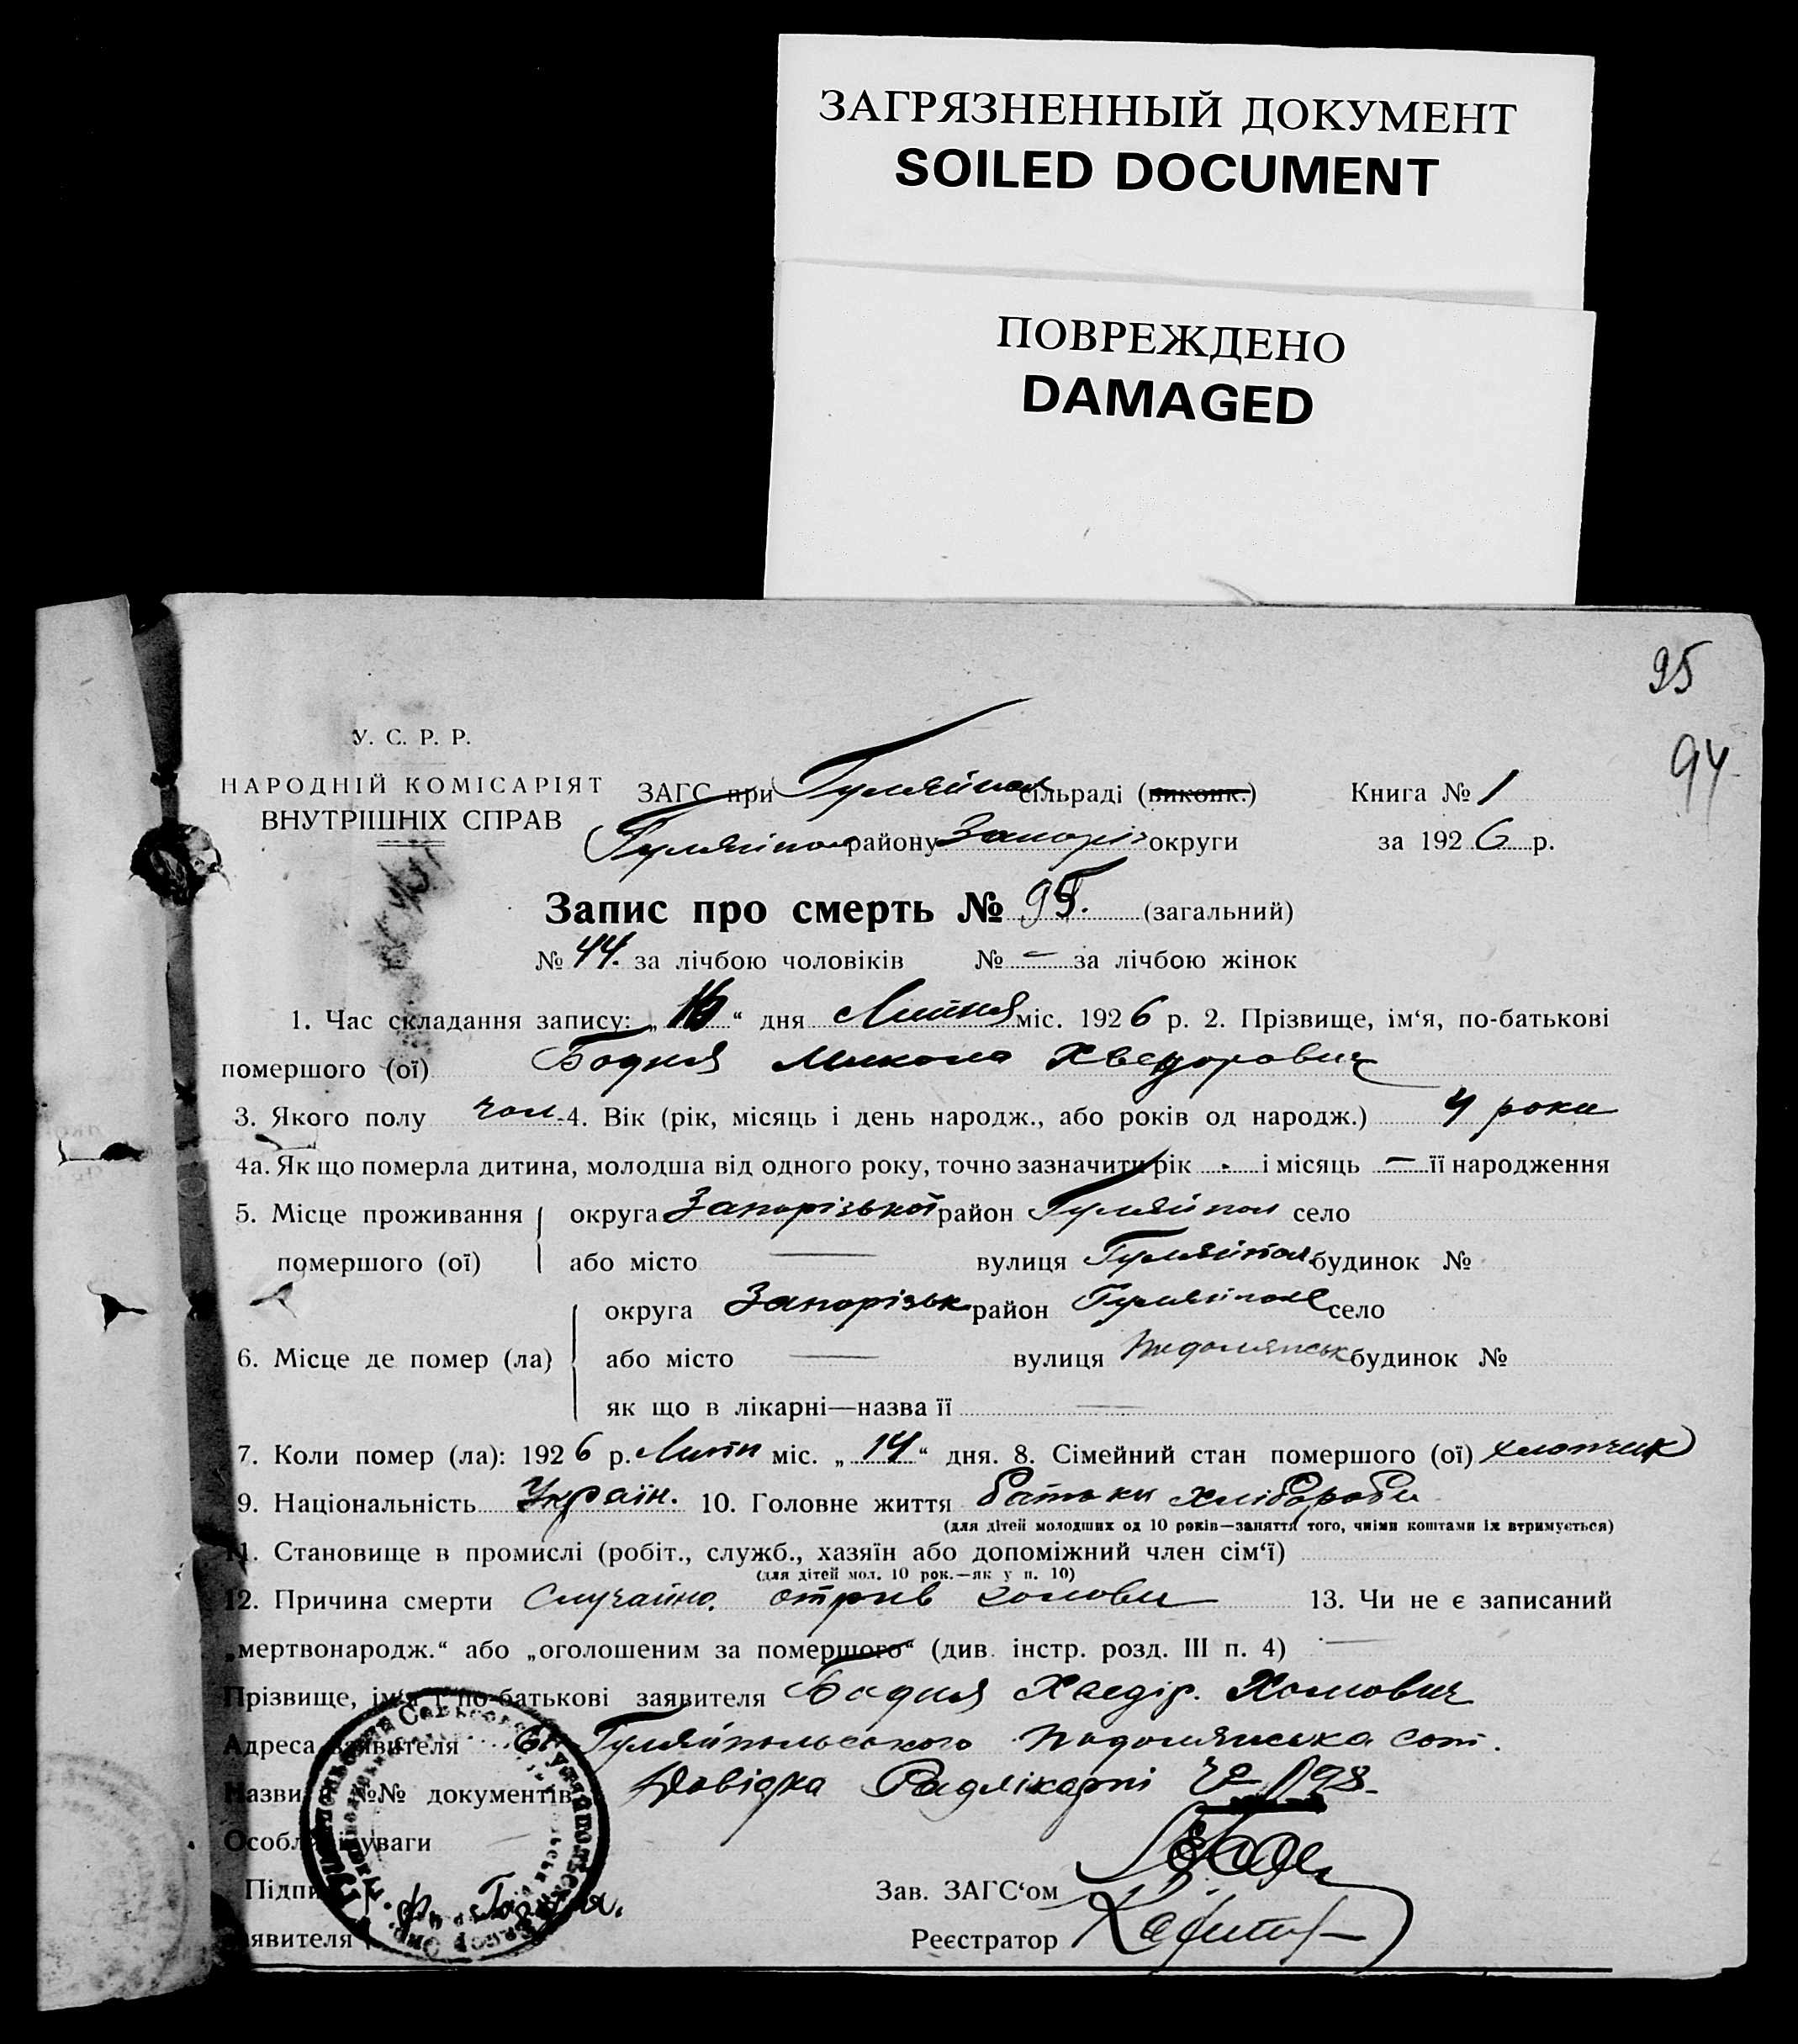 ЗАГРЯЗНЕННЫЙ ДОКУМЕНТ
SOILED DOCUMENT
ПОВРЕЖДЕНО
DAMAGED
95
94
У. С. Р. Р.
НАРОДНІЙ КОМІСАРІЯТ
ВНУТРІШНІХ СПРАВ
ЗАГС при Гуляйпол сільраді (виконк.) Книга № 1
Гуляйпол району Запоріз округи за 1926 р.
Запис про смерть № 95. (загальний)
№ 44. за лічбою чоловіків № — за лічбою жінок
1. Час складання запису: „16“ дня Липня міс. 1926 р. 2. Прізвище, ім‘я, по-батькові
помершого (ої) Бодня Микола Хведорович
3. Якого полу чол. 4. Вік (рік, місяць і день народж., або років од народж.) 4 роки
4а. Як що померла дитина, молодша від одного року, точно зазначити рік - і місяць — її народження
5. Місце проживання округа Запорізької район Гуляйпол село
помершого (ої) або місто — вулиця Гуляйпол будинок №
округа Запорізьк район Гуляйполе село
6. Місце де помер (ла) або місто — вулиця Подолянськ будинок №
як що в лікарні—назва її —
7. Коли помер (ла): 1926 р. Липн міс. „14“ дня. 8. Сімейний стан помершого (ої) хлопчик
9. Національність Україн. 10. Головне життя батьки хлібороби
(для дітей молодших од 10 років—заняття того, чиїми коштами їх втримується)
11. Становище в промислі (робіт., служб., хазяїн або допоміжний член сім‘ї)
(для дітей мол. 10 рок.—як у п. 10)
12. Причина смерти Случайно. отрив голови 13. Чи не є записаний
„мертвонародж.“ або „оголошеним за помершого“ (див. інстр. розд. III п. 4) —
Прізвище, ім‘я і по-батькові заявителя Бодня Хведір. Хомович
Адреса заявителя Гуляйпольського Подолянська сот.
Назви №№ документів Довідка Райлікарні № 898
Особливі уваги —
Підпис Бодня.
Зав. ЗАГС‘ом
заявителя
Реєстратор